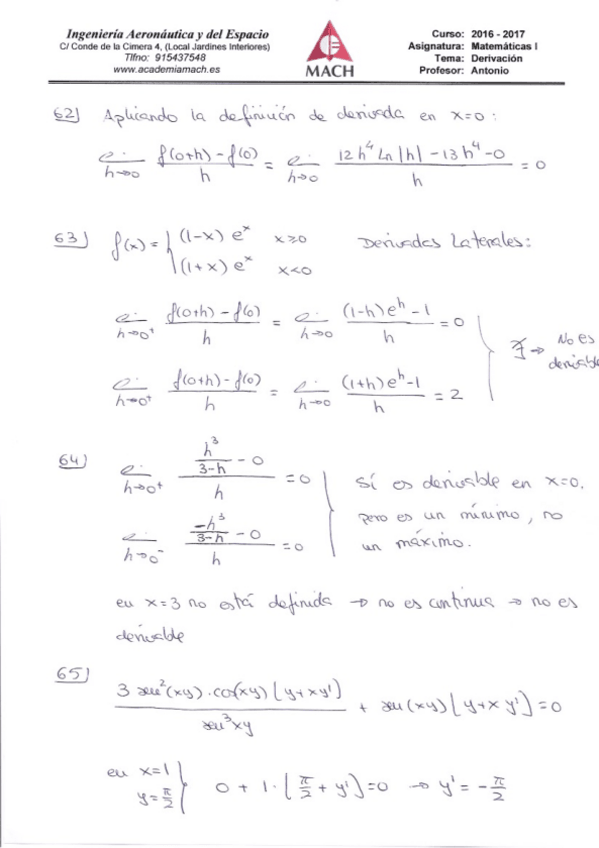 Ingeniería Aeronáutica y del Espacio
C/ Conde de la Cimera 4, (Local Jardines Interiores)
Tlfno: 915437548
www.academiamach.es
MACH
Curso: 2016 - 2017
Asignatura: Matemáticas I
Tema: Derivación
Profesor: Antonio
62) Aplicando la definición de derivada en x=0:
lim h→0 (f(0+h) - f(0))/h = lim h→0 (12h⁴ Ln|h| - 13h⁴ - 0)/h = 0
63) f(x) = { (1-x) eˣ x≥0 Derivadas Laterales:
(1+x) eˣ x<0
lim h→0⁺ (f(0+h) - f(0))/h = lim h→0 ((1-h)eʰ - 1)/h = 0
∄ → No es derivable
lim h→0⁺ (f(0+h) - f(0))/h = lim h→0 ((1+h)eʰ - 1)/h = 2
64) lim h→0⁺ (h³/(3-h) - 0)/h = 0
Sí es derivable en x=0,
pero es un mínimo, no
un máximo.
lim h→0⁻ (-h³/(3-h) - 0)/h = 0
en x=3 no está definida → no es continua → no es
derivable
65) 3 sen²(xy)·cos(xy) [y+xy'] / sen³xy + sen(xy) [y+x y'] = 0
en x=1
y=π/2 } 0 + 1·[π/2 + y'] = 0 → y' = -π/2